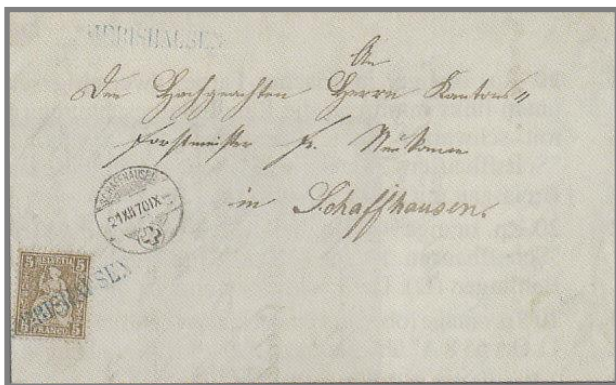 MERISHAUSEN
An
Den Hochgeachten Herrn Kantons„
forstmeister Fr. Neukomm
in Schaffhausen.
SCHAFFHAUSEN
21 XII 70 IX
5 HELVETIA 5
MERISHAUSEN
5 FRANCO 5